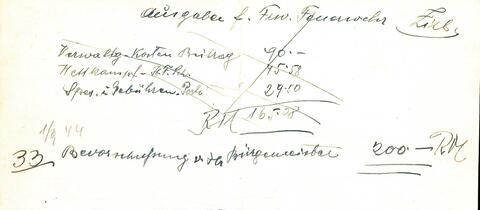 Ausgaben f. Frw. Feuerwehr Zirl.
Verwaltg-Kosten Beitrag 90.-
Wettkampf- 45.58
Spes. u Gebühren- 29.80
RM 165.38
1/9 44
33 Bevorschußung der Bürgermeister 200.- RM